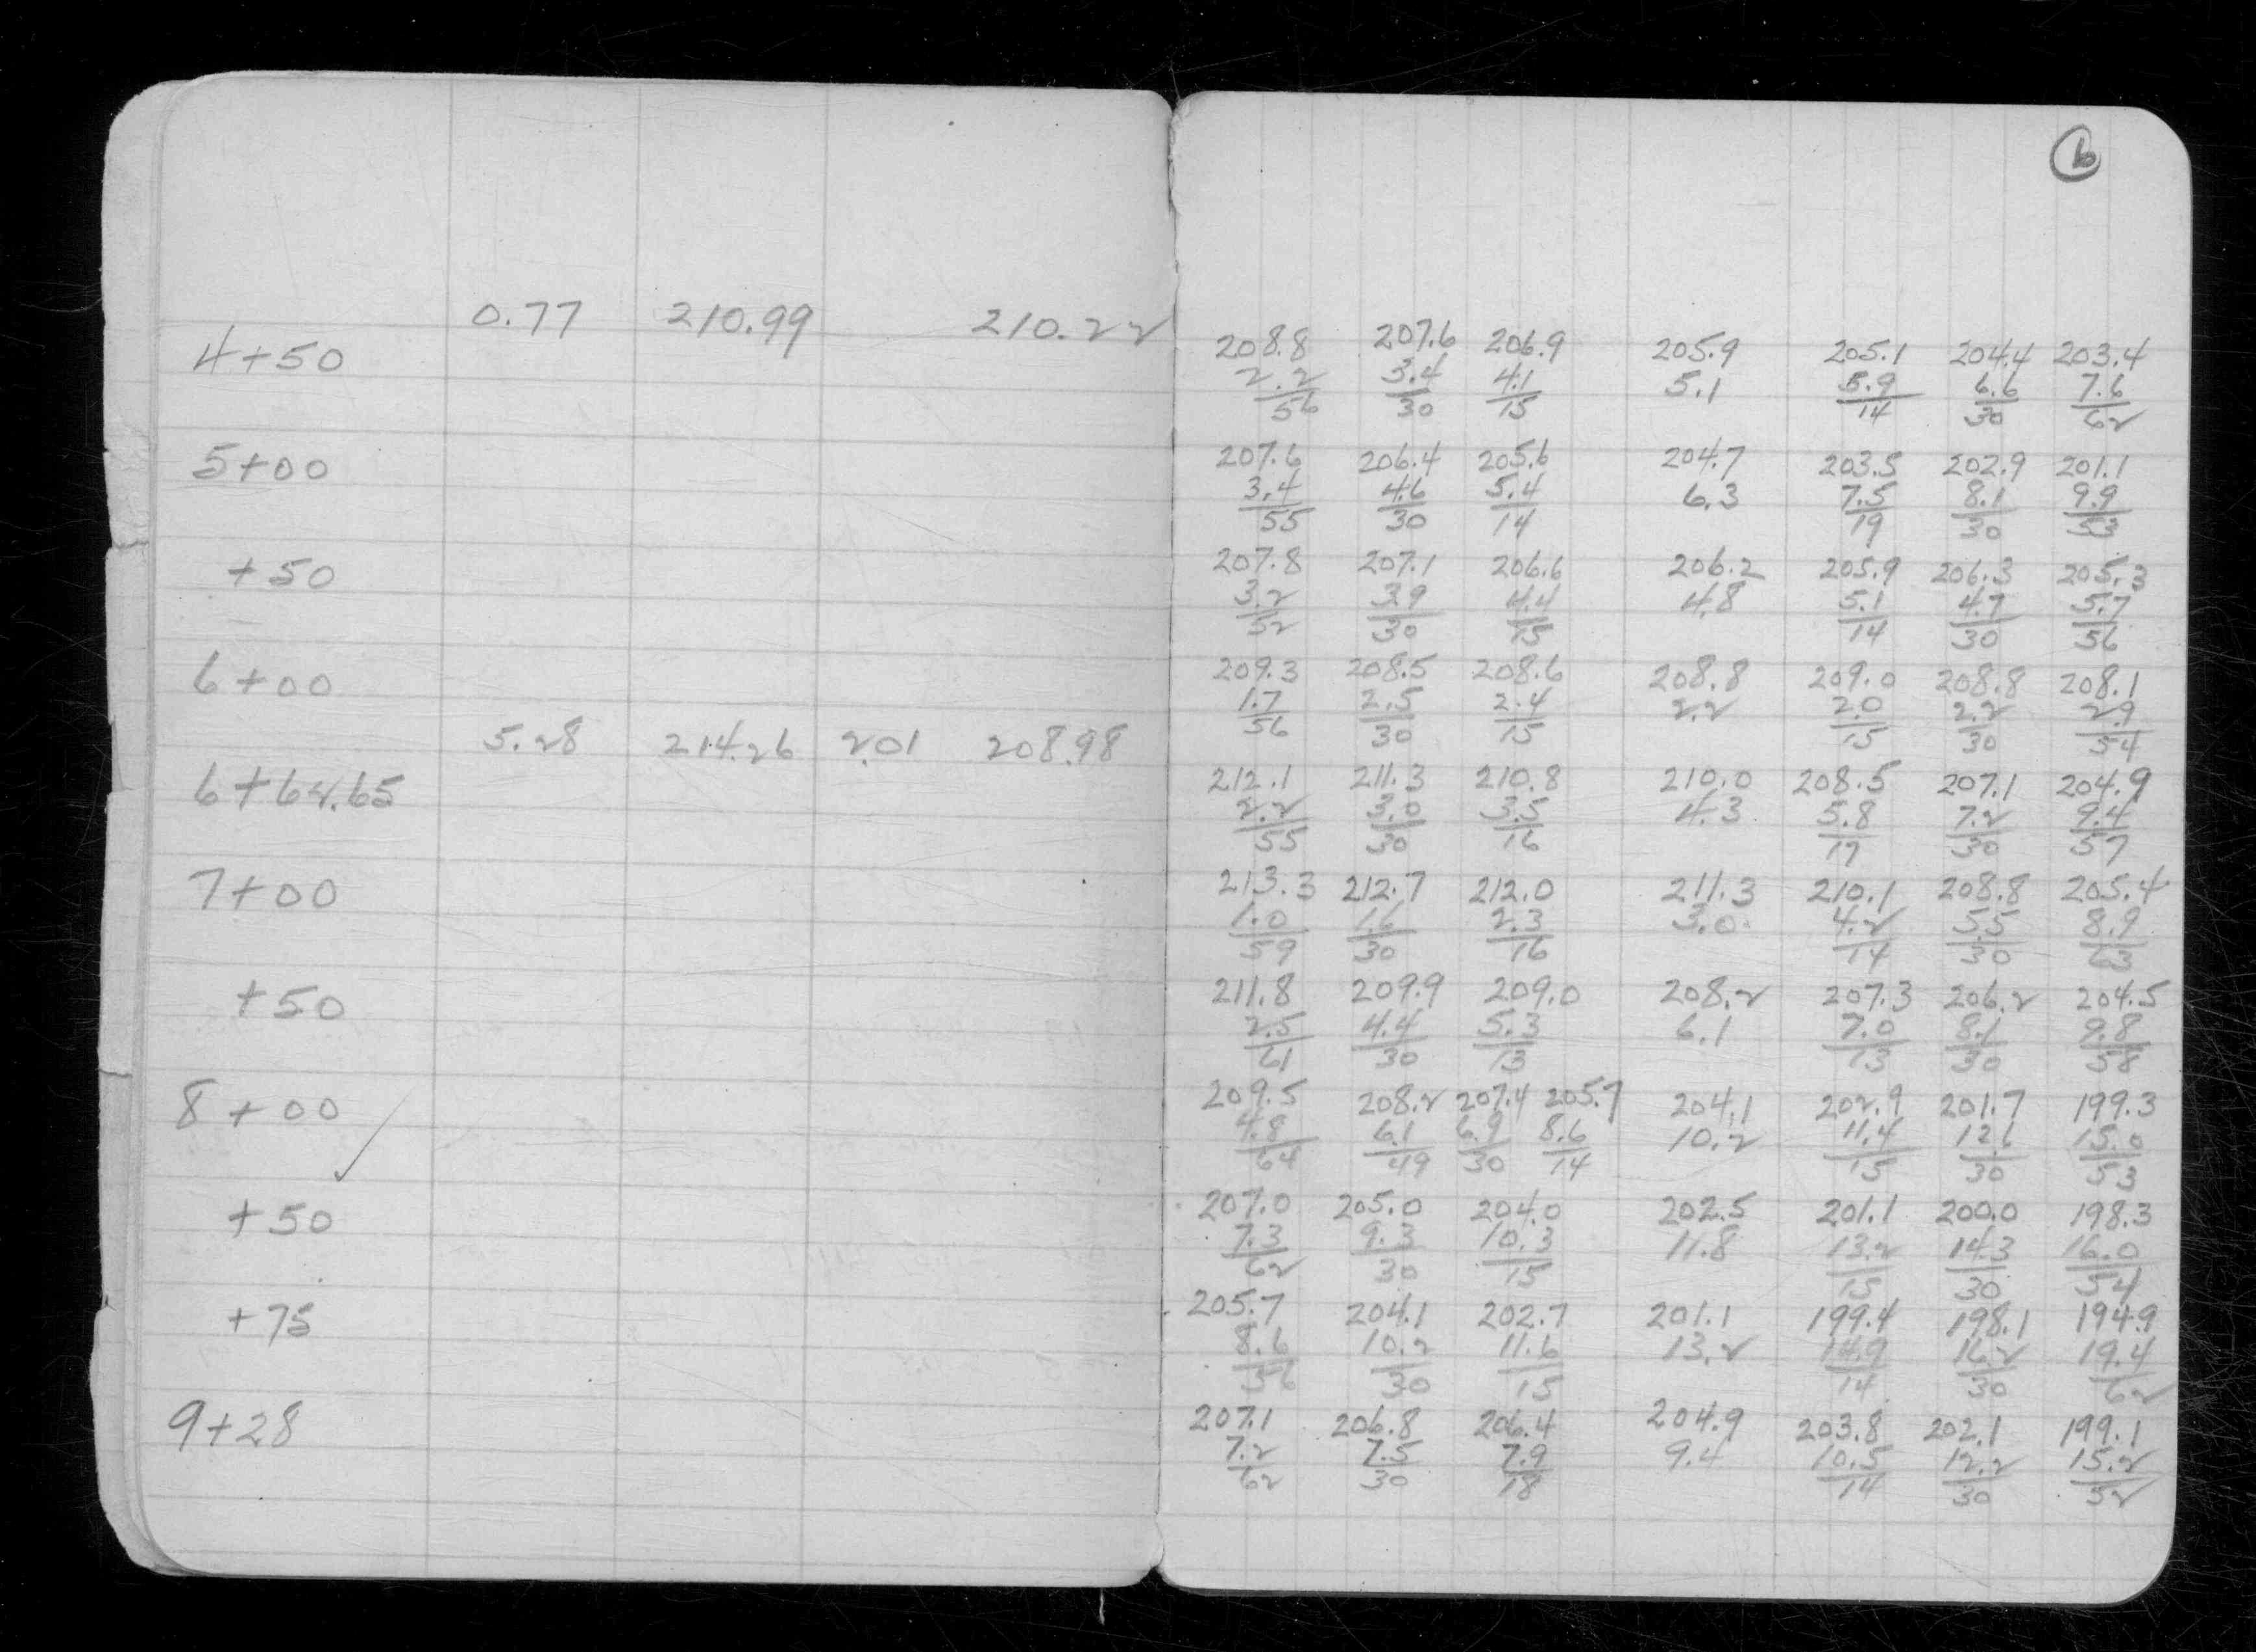 6
0.77 210.99 210.22
4+50 208.8 207.6 206.9 205.9 205.1 204.4 203.4
2.2 3.4 4.1 5.1 5.9 6.6 7.6
56 30 15 14 30 62
5+00 207.6 206.4 205.6 204.7 203.5 202.9 201.1
3.4 4.6 5.4 6.3 7.5 8.1 9.9
55 30 14 19 30 53
+50 207.8 207.1 206.6 206.2 205.9 206.3 205.3
3.2 3.9 4.4 4.8 5.1 4.7 5.7
52 30 15 14 30 56
6+00 209.3 208.5 208.6 208.8 209.0 208.8 208.1
1.7 2.5 2.4 2.2 2.0 2.2 2.9
56 30 15 15 30 54
5.28 214.26 2.01 208.98
6+64.65 212.1 211.3 210.8 210.0 208.5 207.1 204.9
2.2 3.0 3.5 4.3 5.8 7.2 9.4
55 30 16 17 30 57
7+00 213.3 212.7 212.0 211.3 210.1 208.8 205.4
1.0 1.6 2.3 3.0 4.2 5.5 8.9
59 30 16 14 30 63
+50 211.8 209.9 209.0 208.2 207.3 206.2 204.5
2.5 4.4 5.3 6.1 7.0 8.1 9.8
61 30 13 13 30 58
8+00 209.5 208.2 207.4 205.7 204.1 202.9 201.7 199.3
4.8 6.1 6.9 8.6 10.2 11.4 12.6 15.0
64 49 30 14 15 30 53
+50 207.0 205.0 204.0 202.5 201.1 200.0 198.3
7.3 9.3 10.3 11.8 13.2 14.3 16.0
62 30 15 15 30 54
+75 205.7 204.1 202.7 201.1 199.4 198.1 194.9
8.6 10.2 11.6 13.2 14.9 16.2 19.4
56 30 15 14 30 62
9+28 207.1 206.8 206.4 204.9 203.8 202.1 199.1
7.2 7.5 7.9 9.4 10.5 12.2 15.2
62 30 18 14 30 52